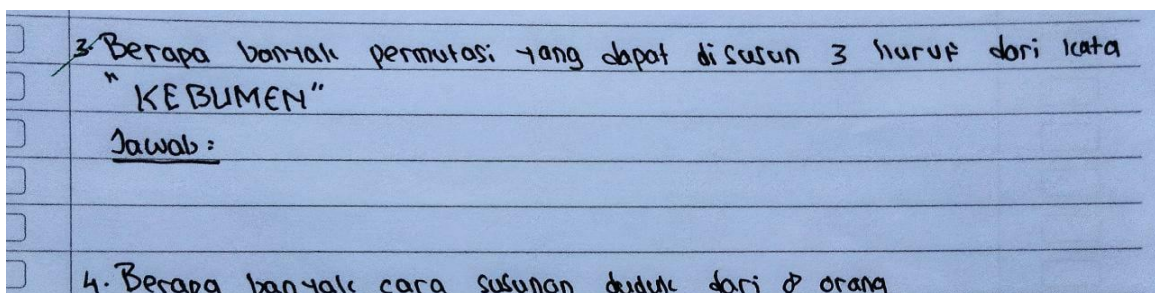 3. Berapa banyak permutasi yang dapat disusun 3 huruf dari kata
"KEBUMEN"
Jawab :
4. Berapa banyak cara susunan duduk dari 8 orang